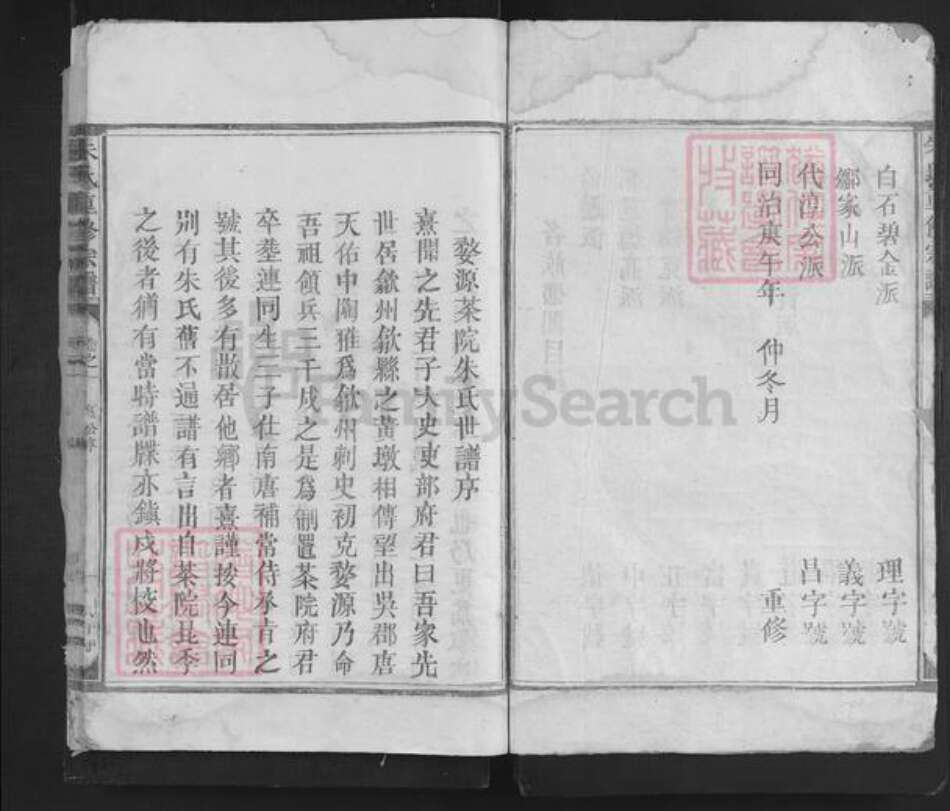 白石碧金派 理字號
鄒家山派 義字號
代淳公派 昌字號
同治庚午年 仲冬月 重修
婺源茶院朱氏世譜序
熹聞之先君子太史吏部府君曰吾家先
世居歙州歙縣之黃墩相傳望出吳郡唐
天佑中陶雅爲歙州刺史初克婺源乃命
吾祖領兵三千戍之是爲制置茶院府君
卒塟連同生三子仕南唐補常侍承旨之
號其後多有散居他鄉者熹謹按今連同
別有朱氏舊不通譜有言出自茶院昆季
之後者猶有當時譜牒亦鎮戍將校也然
朱氏重修宗譜
FamilySearch